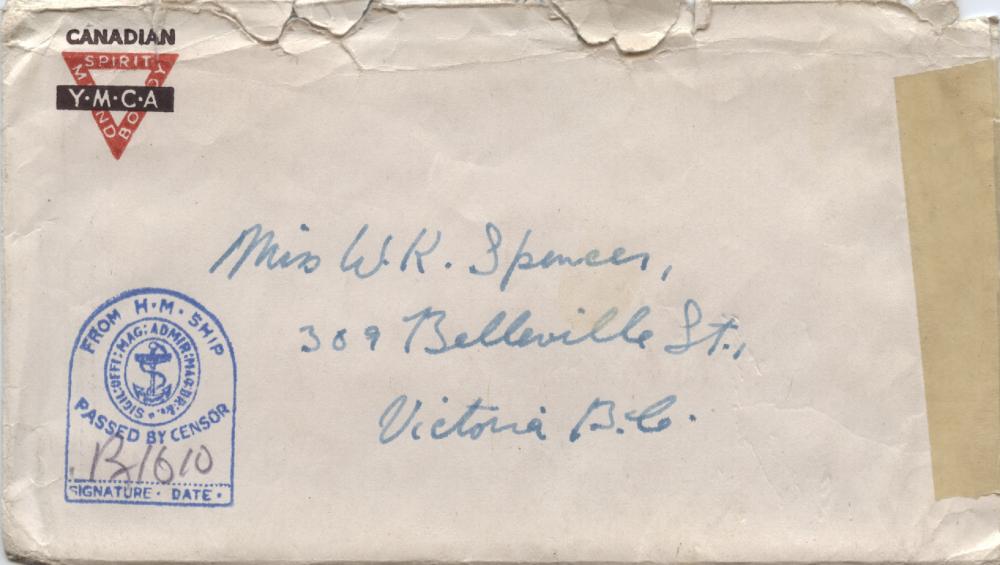 CANADIAN
SPIRIT
MIND
BODY
Y·M·C·A
Miss W.K. Spencer,
309 Belleville St.,
Victoria B.C.
FROM H·M·SHIP
SIGIL:OFFI:MAG:ADMIR:MAG:BR:&c.
PASSED BY CENSOR
SIGNATURE · DATE ·